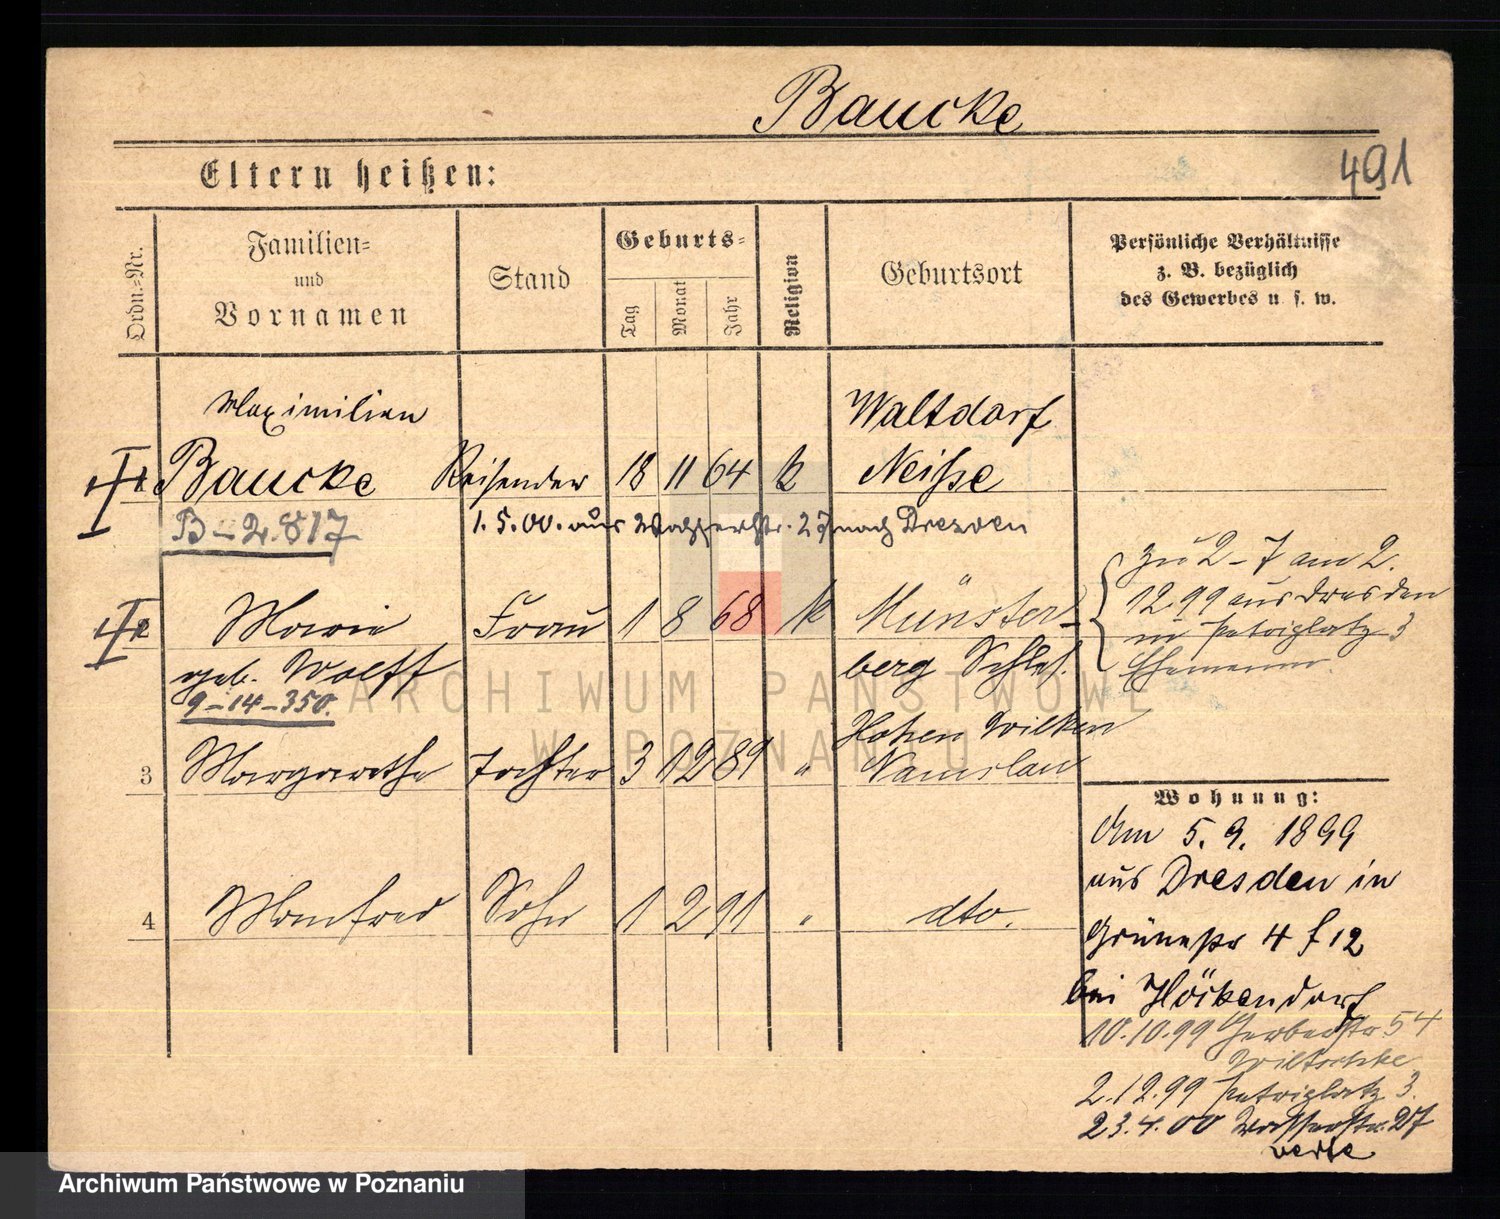 Baucke
491
Eltern heißen:
Ordn.-Nr.
Familien-
und
Vornamen
Stand
Geburts-
Tag
Monat
Jahr
Religion
Geburtsort
Persönliche Verhältnisse
z. B. bezüglich
des Gewerbes u. s. w.
Maximilian
Baucke Reisender 18 11 64 k Waltdorf
Neiße
B-2.817
1. 5. 00. aus Wasserstr. 27 nach Dresden
zu 2-7 am 2.
12 99 aus Dresden
in Petriplatz 3
Ehemann.
Marie Frau 1 8 68 k Münster-
geb. Wolff berg Schles.
9-14-350.
3 Margarethe Tochter 3 12 89 " Hohen Wilken
Namslau
4 Manfred Sohn 1 2 91 " dto.
Wohnung:
Am 5. 9. 1899
aus Dresden in
Grünestr 4 f 12
bei Höckendorf
10.10.99 Gerberstr. 54
2.12.99 Petriplatz 3.
23.4.00 Wasserstr. 27
verte
ARCHIWUM PAŃSTWOWE
W POZNANIU
Archiwum Państwowe w Poznaniu